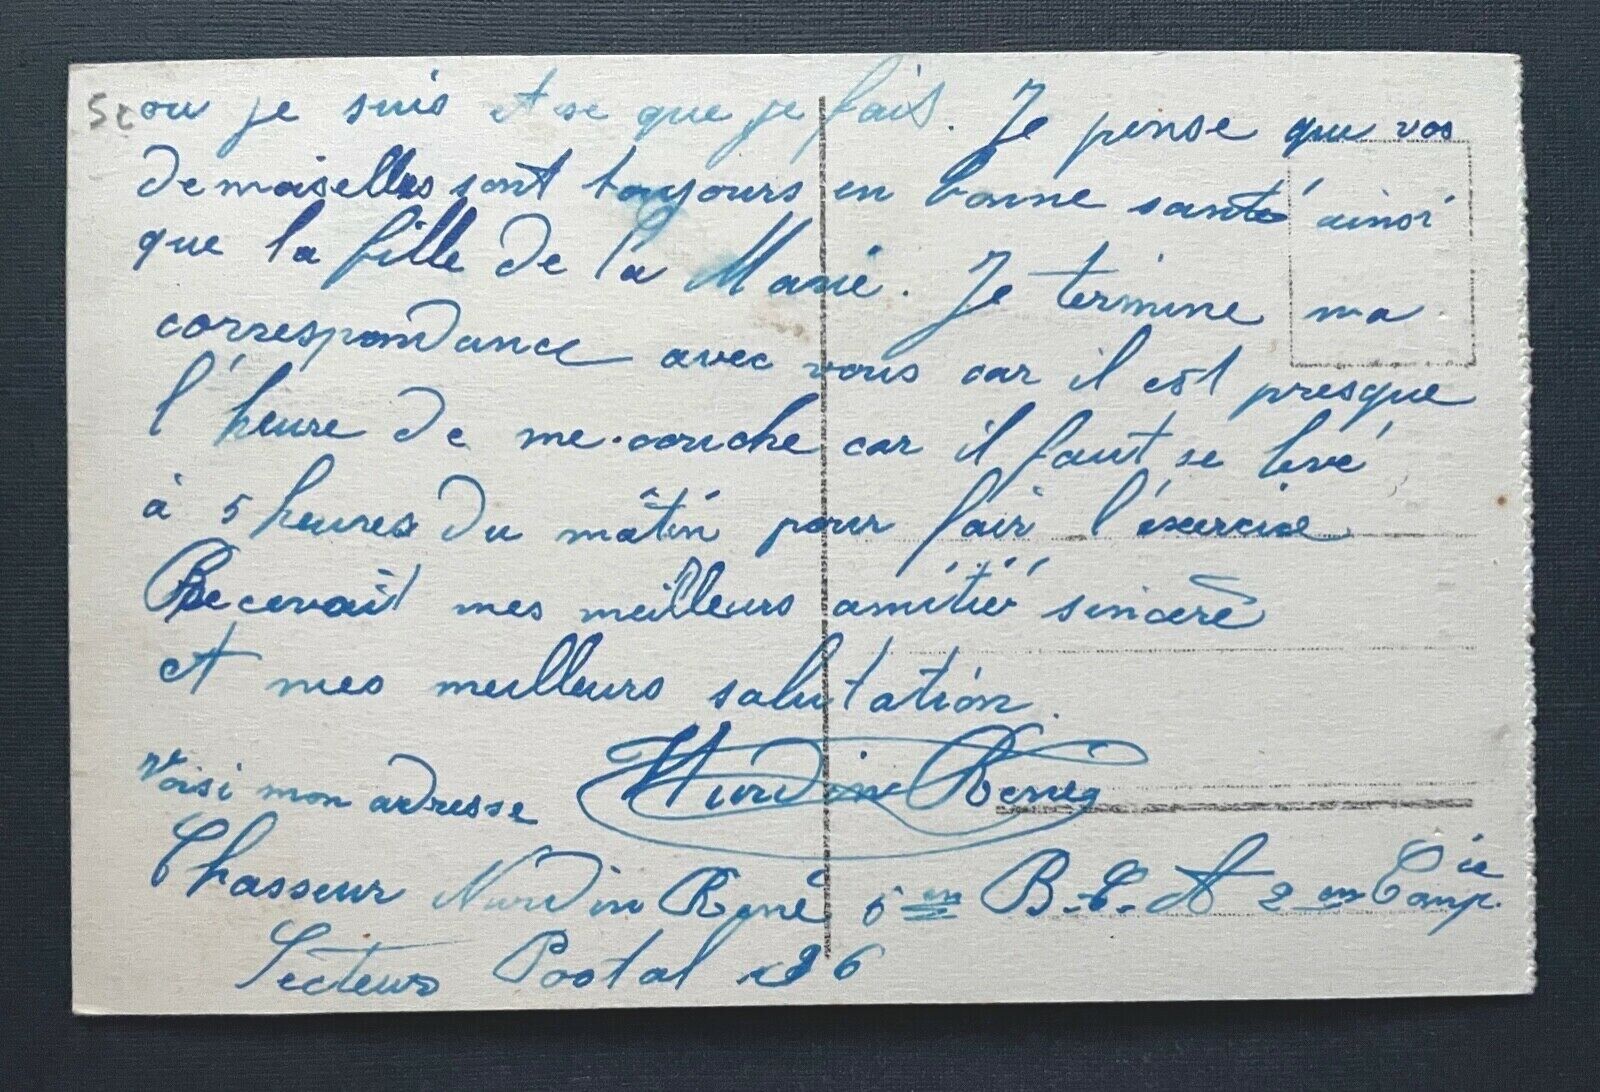 ou je suis et se que je fais. Je pense que vos
demoiselles sont toujours en bonne santé ainsi
que la fille de la Marie. Je termine ma
correspondance avec vous car il est presque
l'heure de me couche car il faut se levé
à 5 heures du mâtin pour fair l'exercise
Recevait mes meilleurs amitié sincère
et mes meilleurs salutation.
Voisi mon adresse
Chasseur Nurdin René 6em B.C.A 2em Comp.ie
Secteur Postal